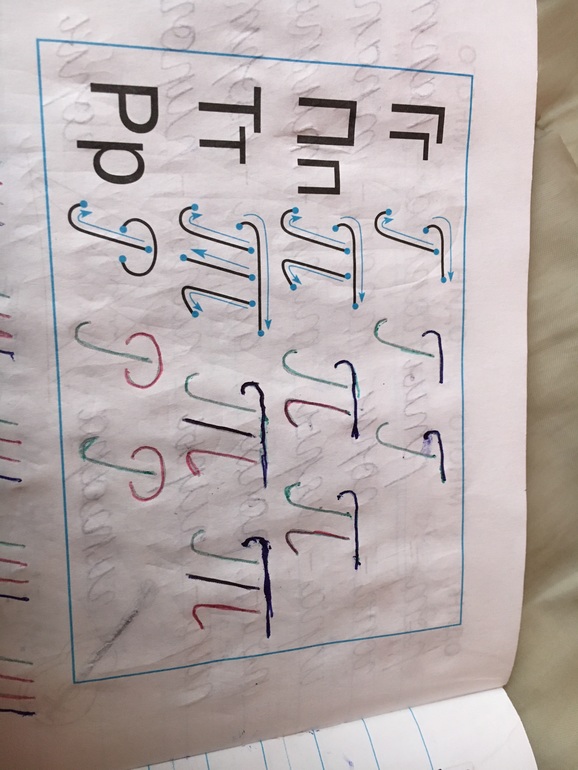 Гг Г Г Г
Пп П П П
Тт Т Т Т
Рр Р Р Р